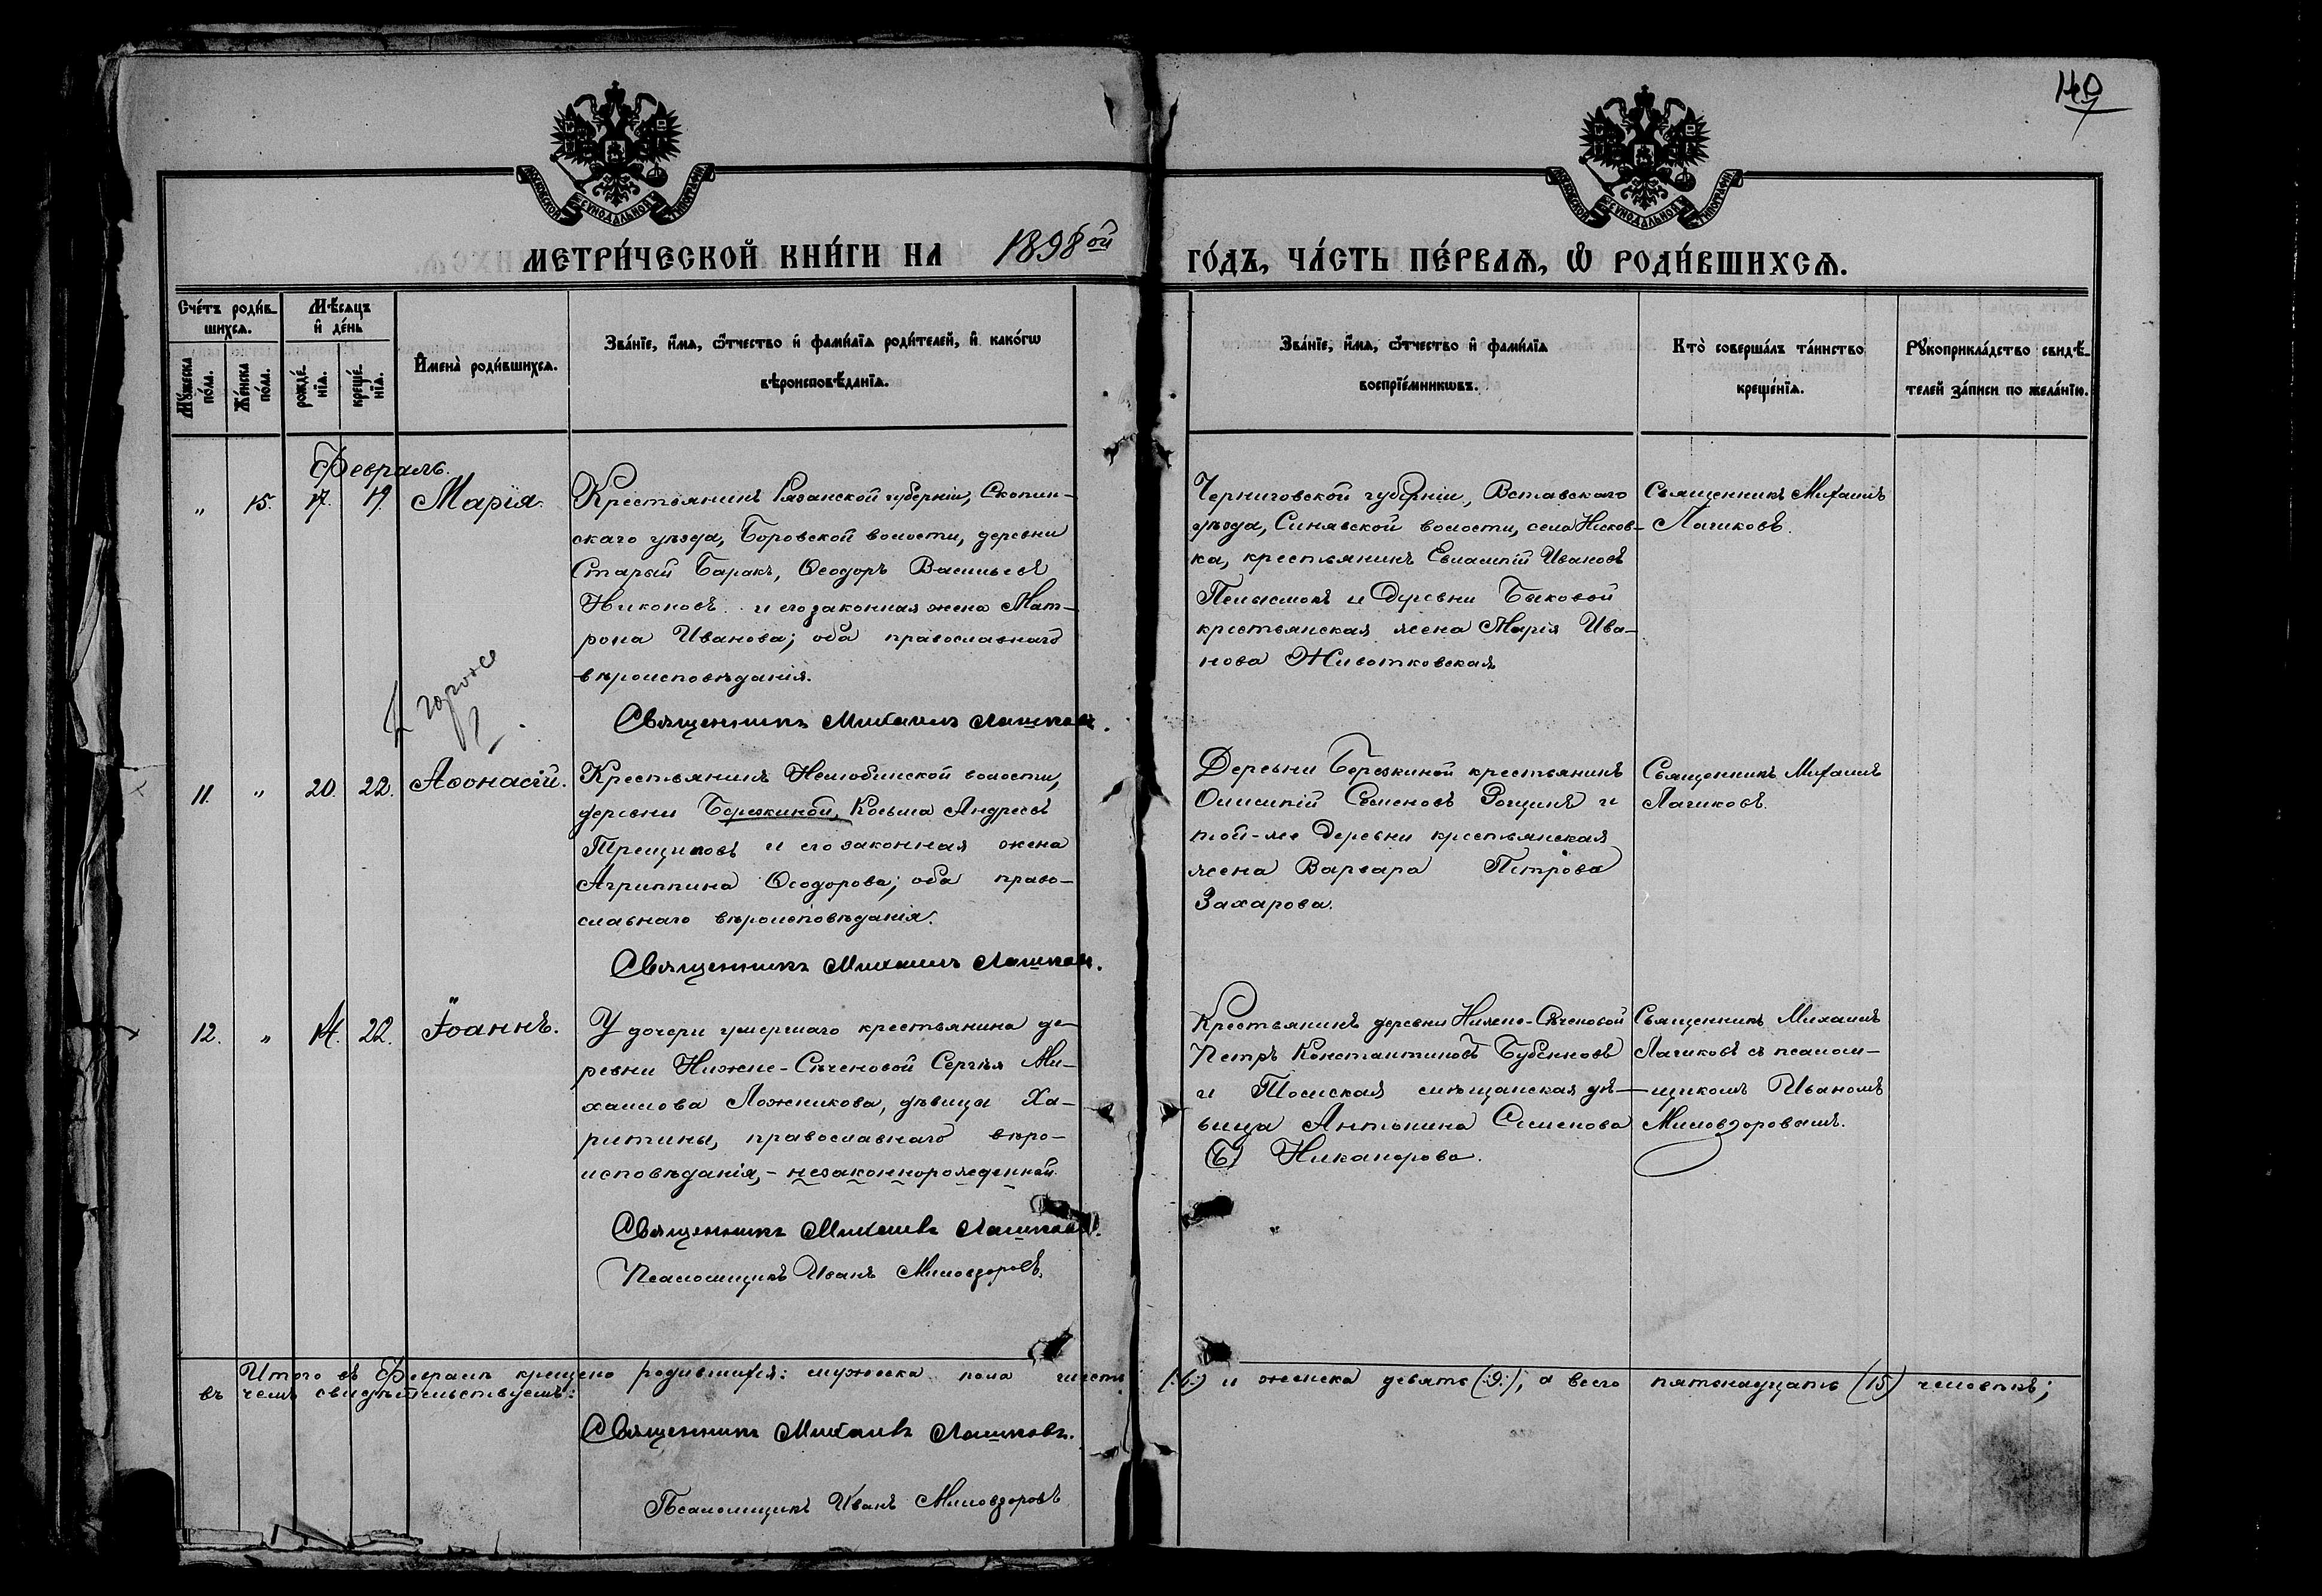 140
МОСКОВСКОЙ СѴНОДАЛЬНОЙ ТИПОГРАФІИ
МОСКОВСКОЙ СѴНОДАЛЬНОЙ ТИПОГРАФІИ
МЕТРИ́ЧЕСКОЙ КНИ́ГИ НА 1898ой ГО́ДЪ, ЧА́СТЬ ПЕ́РВАѦ, Ѡ РОДИ́ВШИХСѦ.
Сче́тъ роди́в-
шихсѧ.
Мѣ́сѧцъ
и де́нь
Мꙋ́жеска
по́ла.
Же́нска
по́ла.
рожде́-
нїѧ.
креще́-
нїѧ.
Имена̀ роди́вшихсѧ.
Зва́нїе, и́мѧ, ѻ́тчество и фами́лїѧ роди́телей, и како́гѡ
вѣроисповѣ́данїѧ.
Зва́нїе, и́мѧ, ѻ́тчество и фами́лїѧ
воспрїе́мникѡвъ.
Кто̀ соверша́лъ та́инство
креще́нїѧ.
Рꙋкоприкла́дство свидѣ́-
телей за́писи по жела́нїю.
Февраль.
„ 15. 17. 19. Марія.
Крестьянинъ Рязанской губерніи, Скопин-
скаго уѣзда, Боровской волости, деревни
Старый Баракъ, Ѳеодоръ Васильевъ
Никоновъ и его законная жена Мат-
рона Иванова; оба православнаго
вѣроисповѣданія.
Священникъ Михаилъ Лашковъ.
Черниговской губерніи,
уѣзда, Синявской волости, села
ка, крестьянинъ Евлампій Ивановъ
и Деревни Быковой
крестьянская жена Марія Ива-
нова Животковская
Священникъ Михаилъ
Лашковъ.
11. „ 20. 22. Аѳонасій.
Крестьянинъ Нелюбинской волости,
деревни Березкиной, Косьма Андреевъ
Трещиловъ и его законная жена
Агриппина Ѳеодорова; оба право-
славнаго вѣроисповѣданія.
Священникъ Михаилъ Лашковъ.
Деревни Березкиной крестьянинъ
Олимпій Семеновъ Рощинъ и
той-же Деревни крестьянская
жена Варвара Петрова
Захарова.
Священникъ Михаилъ
Лашковъ.
12. „ 14. 22. Іоаннъ.
У дочери умершаго крестьянина де-
ревни Нижне-Сѣченовой Сергѣя Ми-
хаилова Ложникова, дѣвицы Ха-
ритины, православнаго вѣро-
исповѣданія, - незаконнорожденный.
Священникъ Михаилъ Лашковъ.
Псаломщикъ Иванъ Миловзоровъ.
Крестьянинъ деревни Нижне-Сѣченовой
Петръ Константиновъ Бубенновъ
и Томская мѣщанская дѣ-
вица Антонина Семенова
Никанорова.
Священникъ Михаилъ
Лашковъ съ псалом-
щикомъ Иваномъ
Миловзоровымъ.
Итого въ Февралѣ крещено родившихся: мужеска пола шесть (:6:) и женска девять (:9:), а всего пятнадцать (15) человѣкъ;
въ чемъ свидѣтельствуемъ:
Священникъ Михаилъ Лашковъ.
Псаломщикъ Иванъ Миловзоровъ